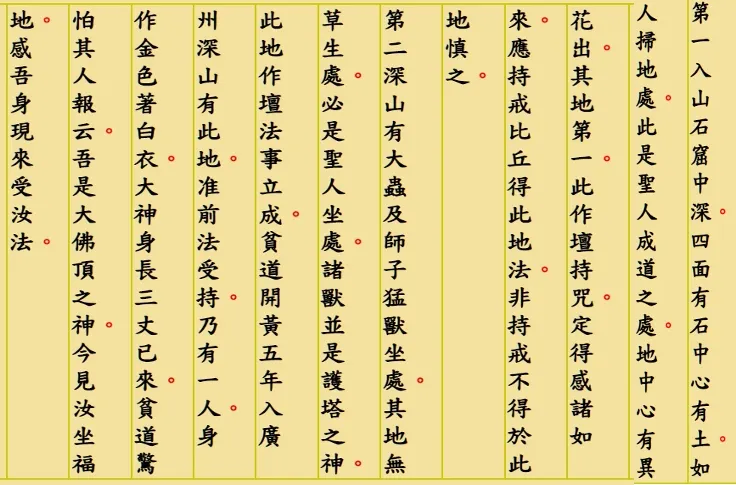 第一入山石窟中深。四面有石中心有土。如
人掃地處。此是聖人成道之處。地中心有異
花出。其地第一。此作壇持咒。定得感諸如
來。應持戒比丘得此地法。非持戒不得於此
地慎之。
第二深山有大蟲及師子猛獸坐處。其地無
草生處。必是聖人坐處。諸獸並是護塔之神。
此地作壇法事立成。貧道開黃五年入廣
州深山有此地。准前法受持。乃有一人。身
作金色著白衣。大神身長三丈已來。貧道驚
怕其人報云。吾是大佛頂之神。今見汝坐福
地。感吾身現來受汝法。